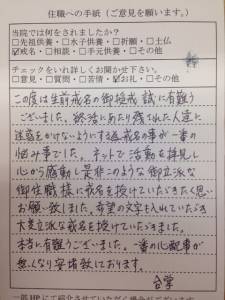 住職への手紙（ご意見を願います。）
当院では何をされましたか？
□先祖供養・□水子供養・□祈願・□土仏
☑戒名・□相談・□手元供養・□その他
チェックをいれ詳しくお聞かせ下さい。
□意見・□質問・□苦情・☑お礼・□その他
この度は生前戒名の御授戒 誠に有難う
ございました。終活にあたり残された人達に
迷惑をかけないようにする為戒名の事が一番の
悩み事でした。ネットで活動を拝見し
心から感動し是非このような御立派な
御住職様に戒名を授けていただきたく思い
お願い致しました。希望の文字を入れていただき
大変立派な戒名にして頂きました。
本当に有難うございました。一番の心配事が
無くなり安堵致しております。
合掌